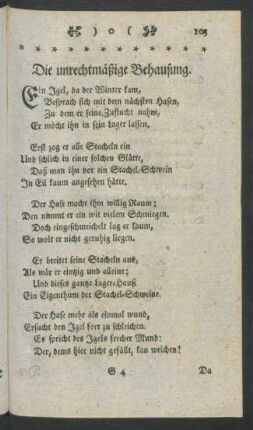 )o(
103
Die unrechtmäßige Behausung.
Ein Igel, da der Winter kam,
Besprach sich mit dem nächsten Hasen,
Zu dem er seine Zuflucht nahm,
Er möcht ihn in sein Lager lassen.
Erst zog er alle Stacheln ein
Und schlich in einer solchen Glätte,
Daß man ihn vor ein Stachel-Schwein
In Eil kaum angesehen hätte.
Der Hase macht ihm willig Raum;
Den nimmt er ein mit vielem Schmiegen.
Doch eingeschmeichelt lag er kaum,
So wolt er nicht geruhig liegen.
Er breitet seine Stacheln aus,
Als wär er eintzig und alleine;
Und dieses gantze Lager-Hauß
Ein Eigenthum der Stachel-Schweine.
Der Hase mehr als einmal wund,
Ersucht den Igel fort zu schleichen.
Es spricht des Igels frecher Mund:
Der, dems hier nicht gefällt, kan weichen!
G 4
Da